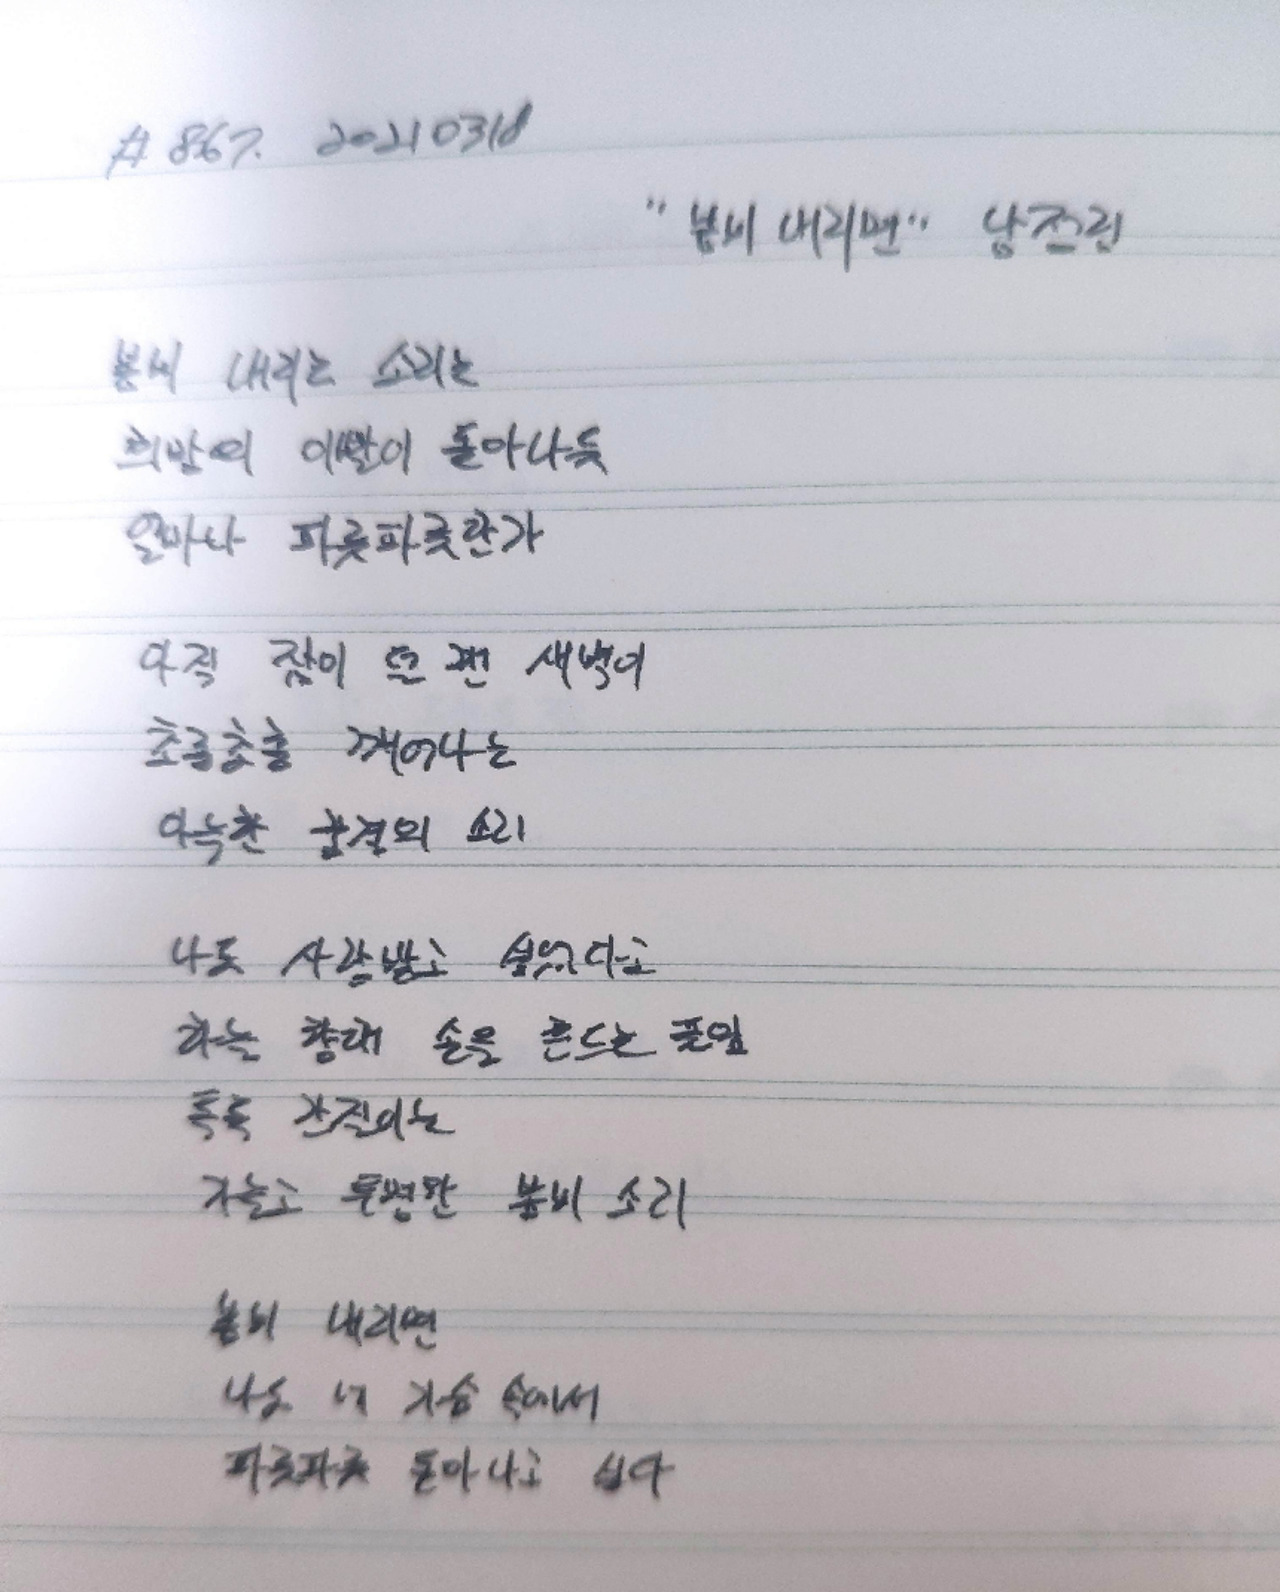 # 867. 20210318
"봄비 내리면" 남정림
봄비 내리는 소리는
희망의 이빨이 돋아나듯
얼마나 파릇파릇한가
아직 잠이 덜 깬 새벽이
초롱초롱 깨어나는
아늑한 숨결의 소리
나도 사랑받고 싶었다고
하늘 향해 손을 흔드는 풀잎
톡톡 간질이는
가늘고 투명한 봄비 소리
봄비 내리면
나도 내 가슴 속에서
파릇파릇 돋아나고 싶다